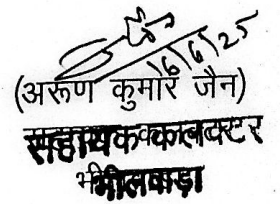 16/6/25
(अरूण कुमार जैन)
सहायक कलक्टर
भीलवाड़ा